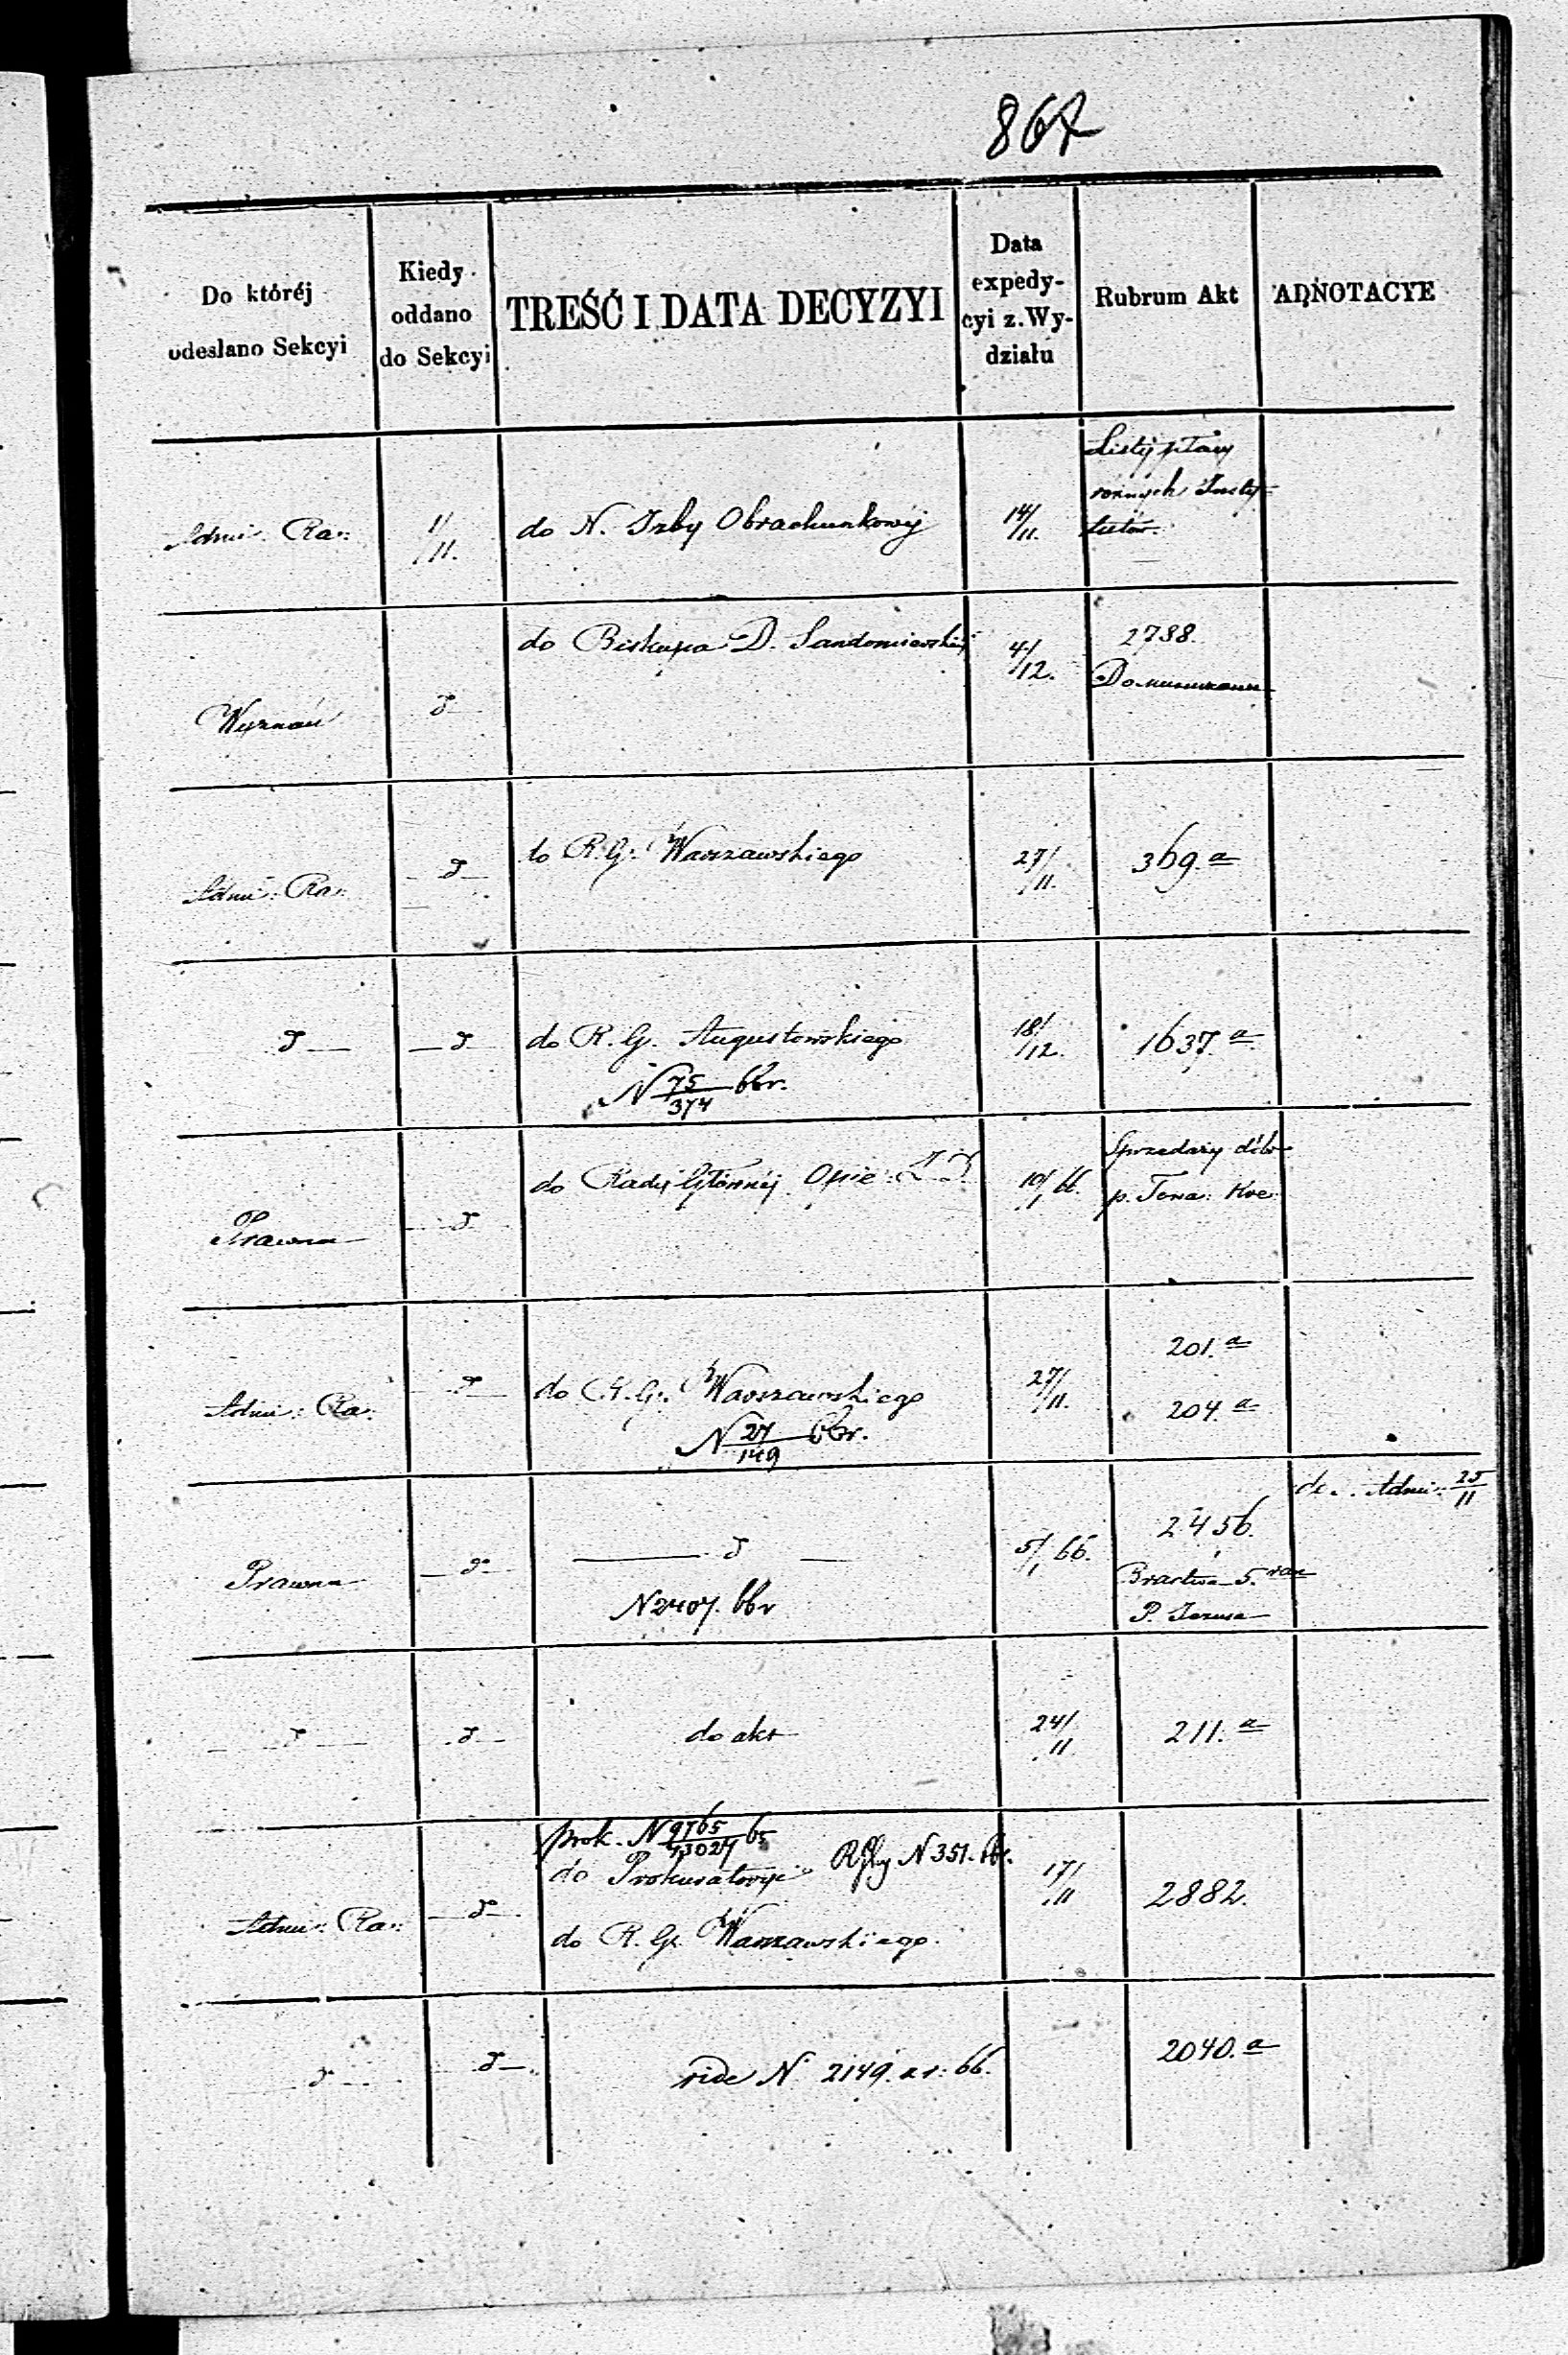 867
Do któréj
odeslano Sekcyi
Kiedy
oddano
do Sekcyi
TREŚĆ I DATA DECYZYI
Data
expedy-
cyi z Wy-
działu
Rubrum Akt
ADNOTACYE
Admi: Ra:
1/11.
do N. Izby Obrachunkowéj
14/11.
Listy płacy
różnych Insty-
tutów.
Wyznań
d
do Biskupa D. Sandomierskiéj
4/12.
2788.
Admi: Ra:
d
do R. G. Warszawskiego
27/11.
369. a
d
d
do R. G. Augustowskiego
N 75/374 66 r.
18/12.
1637. a
Prawna
d
do Rady Głównéj Opie:
10/1 66.
Sprzedaży dóbr
Admi: Ra:
d
do R. G. Warszawskiego
N 27/149 66 r.
27/11.
201. a
204. a
Prawna
d
d
N 2407. 66 r
5/1 66.
2456.
Bractwa 5. ran
P. Jezusa
do Admi: 25/11
d
d
do akt
24/11
211. a
Admi: Ra:
d
prok. N 9765/43027 65
do Prokuratoryi
N 351. 66 r.
do R. G. Warszawskiego.
17/11
2882.
d
d
vide N. 2149. a r: 66.
2040. a